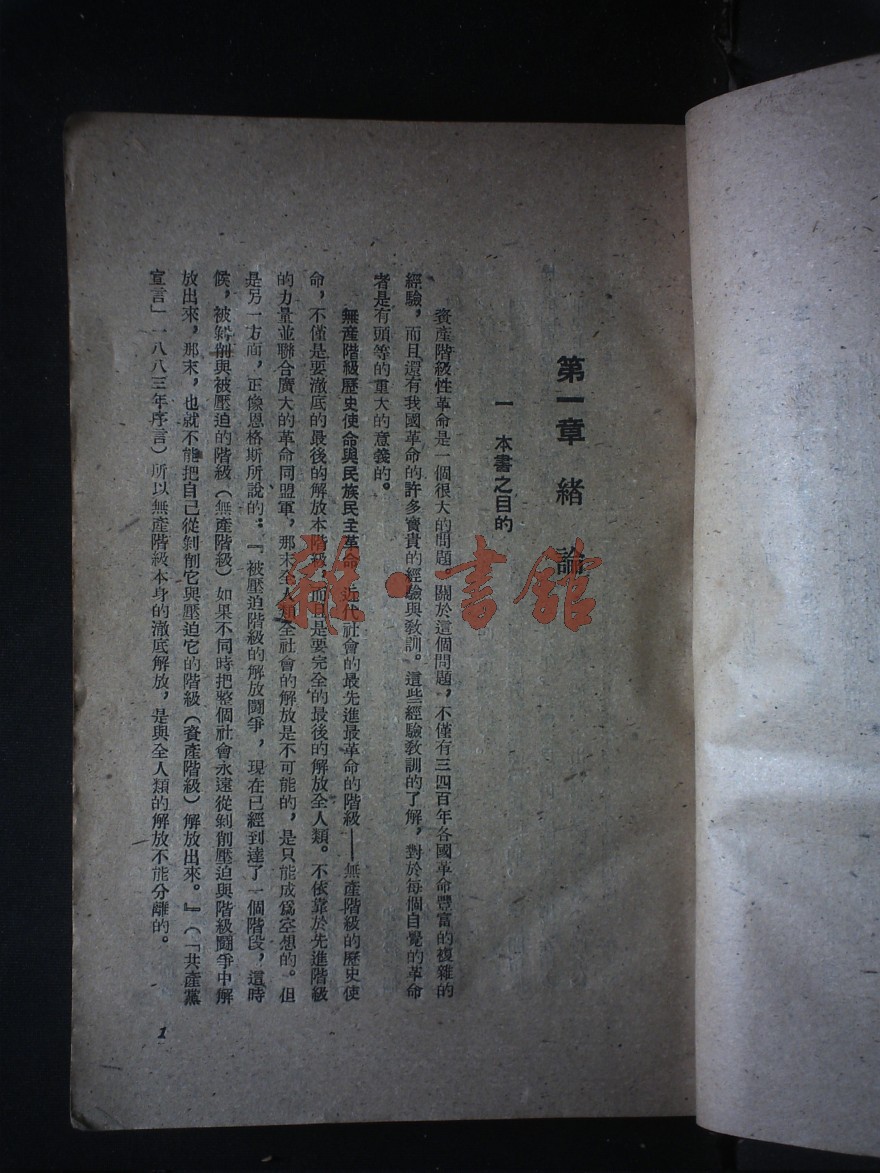 第一章 緒論
一 本書之目的
資產階級性革命是一個很大的問題。關於這個問題，不僅有三四百年各國革命豐富的複雜的
經驗，而且還有我國革命的許多寶貴的經驗與敎訓。這些經驗敎訓的了解，對於每個自覺的革命
者是有頭等的重大的意義的。
無產階級歷史使命與民族民主革命 近代社會的最先進最革命的階級——無產階級的歷史使
命，不僅是要澈底的最後的解放本階級，而且是要完全的最後的解放全人類。不依靠於先進階級
的力量並聯合廣大的革命同盟軍，那末全人類全社會的解放是不可能的，是只能成爲空想的。但
是另一方面，正像恩格斯所說的：『被壓迫階級的解放鬪爭，現在已經到達了一個階段，這時
候，被剝削與被壓迫的階級（無產階級）如果不同時把整個社會永遠從剝削壓迫與階級鬪爭中解
放出來，那末，也就不能把自己從剝削它與壓迫它的階級（資產階級）解放出來。』（「共產黨
宣言」一八八三年序言）所以無產階級本身的澈底解放，是與全人類的解放不能分離的。
1
雜·書館